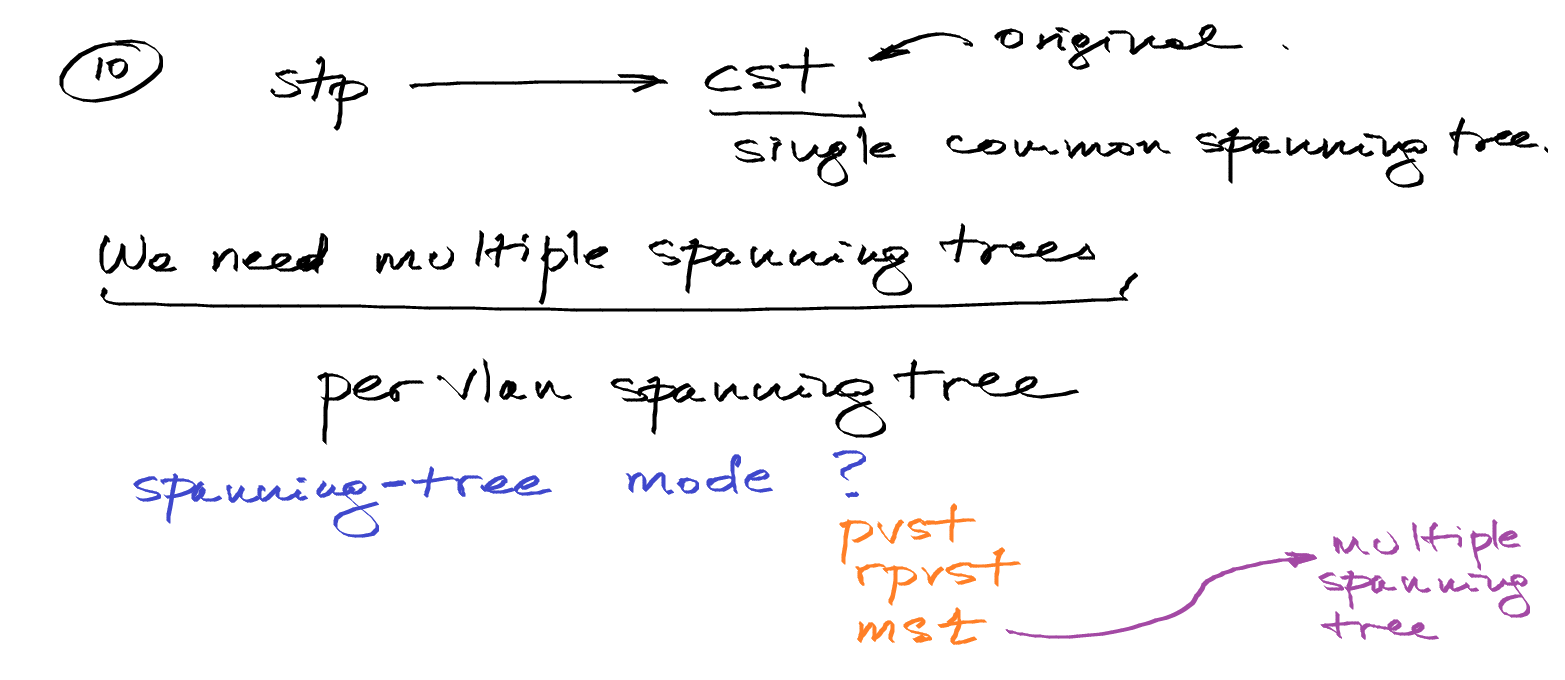 10 stp cst original.
single common spanning tree.
We need multiple spanning trees
per vlan spanning tree
spanning-tree mode ?
pvst
rpvst
mst
multiple
spanning
tree